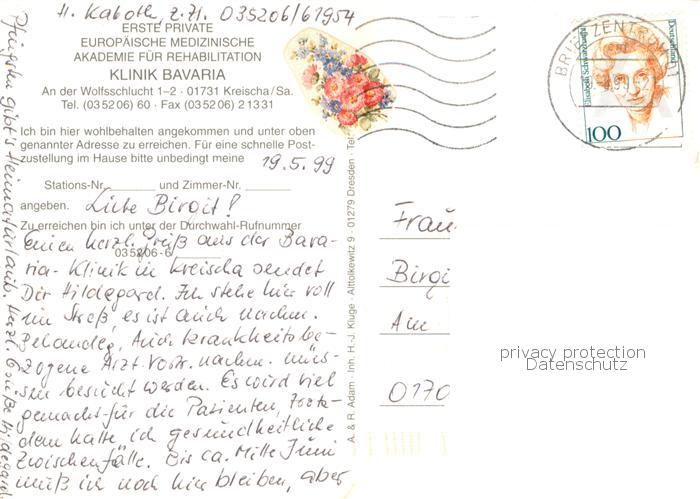 H. Kaboth, z.Zt. 035206/61954
ERSTE PRIVATE
EUROPÄISCHE MEDIZINISCHE
AKADEMIE FÜR REHABILITATION
KLINIK BAVARIA
An der Wolfsschlucht 1–2 · 01731 Kreischa/Sa.
Tel. (03 52 06) 60 · Fax (03 52 06) 2 13 31
Ich bin hier wohlbehalten angekommen und unter oben
genannter Adresse zu erreichen. Für eine schnelle Post-
zustellung im Hause bitte unbedingt meine
19.5.99
Stations-Nr. und Zimmer-Nr.
angeben. Liebe Birgit!
Zu erreichen bin ich unter der Durchwahl-Rufnummer
03 52 06-6
Einen herzl. Gruß aus der Bava-
ria-Klinik in Kreischa sendet
Dir Hildegard. Ich stehe hier voll
im Streß, es ist auch nachm.
Behandlg. Auch krankheitsbe-
zogene Arzt-Vortr. nachm. müs-
sen besucht werden. Es wird viel
gemacht für die Patienten, trotz-
dem hatte ich gesundheitliche
Zwischenfälle. Bis ca. Mitte Juni
muß ich noch hier bleiben, aber
Pfingsten gibt's Heimaturlaub. Herzl. Grüße Hildegard
A. & R. Adam · Inh. H.-J. Kluge · Alttolkewitz 9 · 01279 Dresden · Tel.
BRIEFZENTRUM
Deutschland
Elisabeth Schwarzhaupt
100
Frau
Birgi
Am
0170
privacy protection
Datenschutz